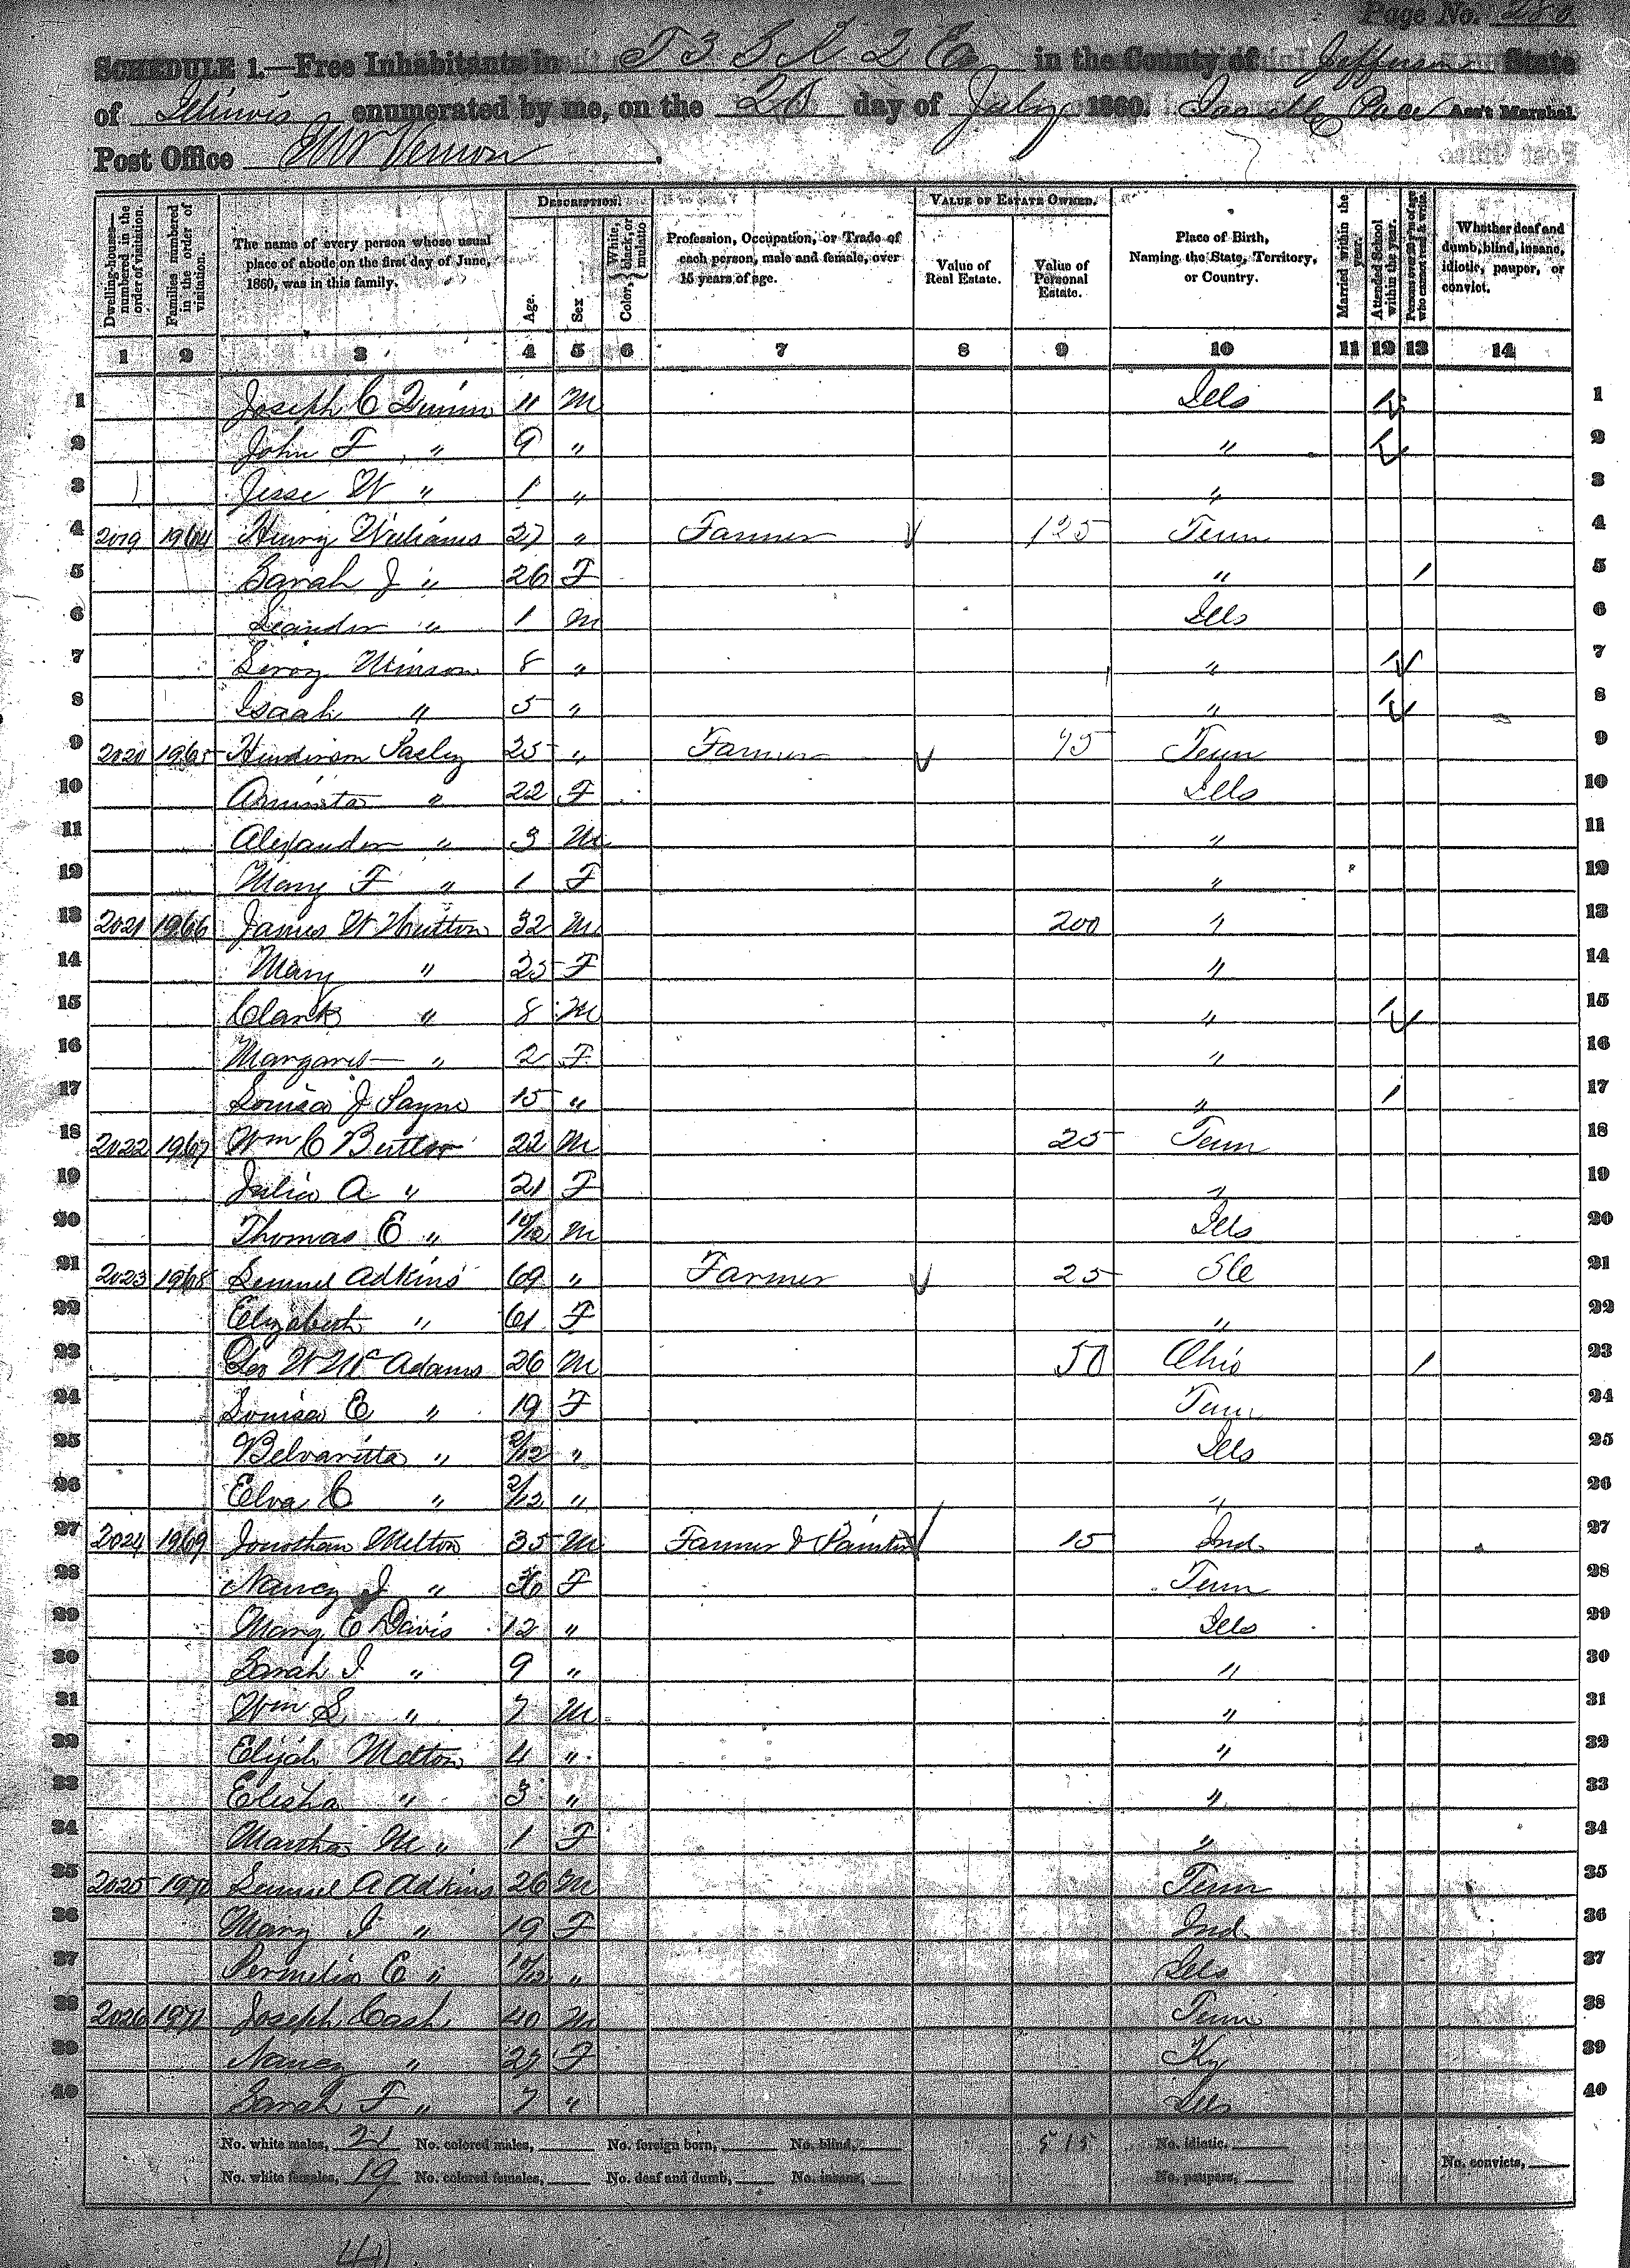 Page No. 280
SCHEDULE 1.—Free Inhabitants in T 3 S R 2 E in the County of Jefferson State
of Illinois enumerated by me, on the 20 day of July 1860. Pace Ass't Marshal.
Post Office Mt Vernon
Dwelling-houses—numbered in the order of visitation.
Families numbered in the order of visitation.
The name of every person whose usual place of abode on the first day of June, 1860, was in this family.
DESCRIPTION.
Age.
Sex
Color, White, black, or mulatto
Profession, Occupation, or Trade of each person, male and female, over 15 years of age.
VALUE OF ESTATE OWNED.
Value of Real Estate.
Value of Personal Estate.
Place of Birth, Naming the State, Territory, or Country.
Married within the year.
Attended School within the year.
Persons over 20 y'rs of age who cannot read & write.
Whether deaf and dumb, blind, insane, idiotic, pauper, or convict.
1 2 3 4 5 6 7 8 9 10 11 12 13 14
1 Joseph C 11 M Ills 1 1
2 John F " 9 " " 1 2
3 Jesse W " 1 " " 3
4 2019 1964 Henry Williams 27 " Farmer 125 Tenn 4
5 Sarah J " 26 F " 1 5
6 Leander " 1 M Ills 6
7 Leroy 8 " " 1 7
8 Isaah " 5 " " 1 8
9 2020 1965 Henderson 25 " Farmer 75 Tenn 9
10 Aminta " 22 F Ills 10
11 Alexander " 3 M " 11
12 Mary F " 1 F " 12
13 2021 1966 James W Hutton 32 M 200 " 13
14 Mary " 25 F " 14
15 Clark " 8 M " 1 15
16 Margaret " 2 F " 16
17 Louisa J Payne 15 " " 1 17
18 2022 1967 Wm C Butler 22 M 25 Tenn 18
19 Julia A " 21 F " 19
20 Thomas E " 10/12 M Ills 20
21 2023 1968 Lemuel Adkins 69 " Farmer 25 21
22 Elizabeth " 61 F " 22
23 Geo W McAdams 26 M 50 Ohio 1 23
24 Louisa E " 19 F Tenn 24
25 Belvaritta " 2/12 " Ills 25
26 Elva C " 2/12 " " 26
27 2024 1969 Jonathan Melton 35 M Farmer & Painter 15 Ind 27
28 Nancy J " F Tenn 28
29 Mary E Davis 12 " Ills 29
30 Sarah J " 9 " " 30
31 Wm S " 7 M " 31
32 Elijah Melton 4 " " 32
33 Elisha " 3 " " 33
34 Martha M " 1 F " 34
35 2025 1970 Lemuel A Adkins 26 M Tenn 35
36 Mary J " 19 F Ind 36
37 Permelia C " 10/12 " Ills 37
38 2026 1971 Joseph Cash 40 M Tenn 38
39 Nancy " 27 F Ky 39
40 Sarah F " 7 " Ills 40
No. white males, 21 No. colored males, No. foreign born, No. blind, 515 No. idiotic,
No. white females, 19 No. colored females, No. deaf and dumb, No. insane, No. paupers, No. convicts,